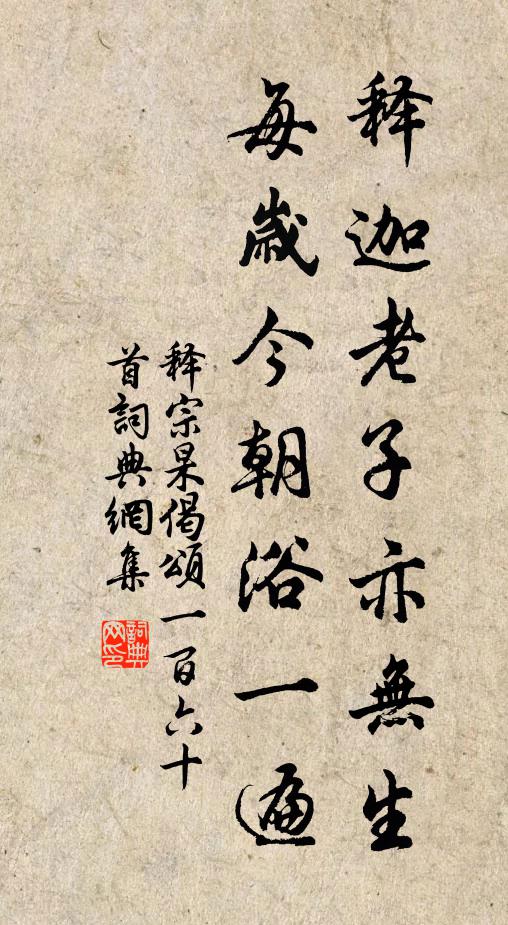 释迦老子亦無生
每歲今朝浴一遍
释宗杲偈頌一百六十
首詞典網集
詞典網印